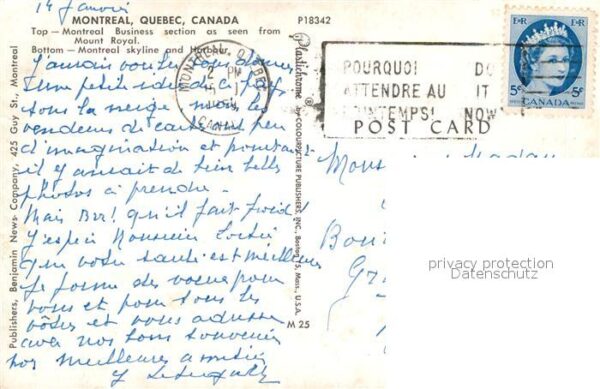 14 Janvier
MONTREAL, QUEBEC, CANADA
P18342
Top — Montreal Business section as seen from
Mount Royal.
Bottom — Montreal skyline and Harbour.
J'aurais voulu vous donner
une petite idée de
sous la neige mais les
vendeurs de cartes ont peu
d'imagination et pourtant
il y aurait de bien belles
photos à prendre.
Mais Brr! qu'il fait froid!
J'espère Monsieur
que votre santé est meilleure
Je forme des voeux pour
vous et pour tous les
vôtres et vous adresse
avec nos bons souvenirs
nos meilleures amitiés
Publishers, Benjamin News Company, 425 Guy St. Montreal
Plastichrome ® by COLOURPICTURE PUBLISHERS, INC., Boston 15, Mass., U.S.A.
M 25
MONTREAL QUEBEC
2 PM
CANADA
POURQUOI DO
ATTENDRE AU IT
PRINTEMPS! NOW
POST CARD
EIIR EIIR
5c CANADA 5c
privacy protection
Datenschutz